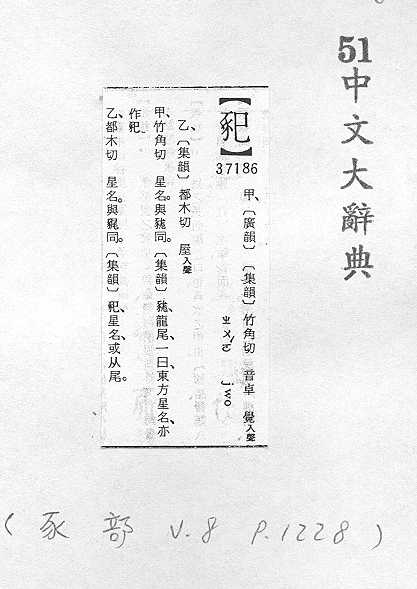 51中文大辭典
【】
37186
甲、〔廣韻〕〔集韻〕竹角切 音卓 覺入聲
ㄓㄨㄛ jwo
乙、〔集韻〕都木切 屋入聲
甲、竹角切 星名。與同。〔集韻〕、龍尾、一曰、東方星名、亦
作
乙、都木切 星名。與同。〔集韻〕、星名、或从尾。
(豕部 V.8 P.1228)